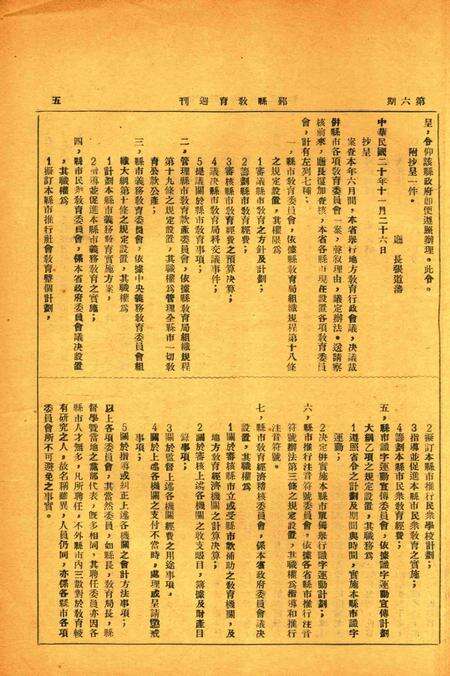 第六期
鄞縣教育週刊
五
呈，令仰該縣政府卽便遵照辦理。此令。
附抄呈一件。
廳 長張道藩
中華民國二十年十一月二十六日
抄呈
案查本年六月間，本省舉行地方教育行政會議，決議裁
併縣市各項教育委員會一案，聲叙理由，議定辦法。送請察
核前來，職長復加查核，本省各縣市現在設置各項教育委員
會，計有左列七種：
一，縣市教育委員會，依據縣教育局組織規程第十八條
之規定設置，其權限爲
1審議縣市教育之方針及計劃；
2籌劃縣市教育經費；
3審核縣市教育經費之預算決算；
4議決縣市教育局科交議事件；
5提議關於縣市教育事項。
二，管理縣市教育款產委員會，依據縣教育局組織規程
第十九條之規定設置，其職權爲管理全縣市一切教
育公款公產；
三，縣市義務教育委員會，依據中央義務教育委員會組
織大綱第十條之規定設置，其職權爲
1計劃本縣市義務教育實施方案，
2指導並促進本縣市義務教育之實施；
四，縣市民衆教育委員會，係本省政府委員會議決設置
，其職權爲
1擬訂本縣市推行社會教育整個計劃，
2擬訂本縣市推行民衆學校計劃；
3指導並促進本縣市民衆教育之實施；
4籌劃本縣市民衆教育經費；
五，縣市識字運動宣傳委員會，依據識字運動宣傳計劃
大綱乙項之規定設置，其職務爲
1遵照省令之計劃及期間與時間，實施本縣市識字
運動；
2決定併實施本縣市單獨舉行識字運動計劃；
六，縣市推行注音符號委員會，依據各省縣市推行注音
符號辦法第三條之規定設置，其職權爲指導和推行
注音符號。
七，縣市教育經濟稽核委員會，係本省政府委員會議決
設置，其職權爲
1關於審核縣市立或受縣市款補助之教育機關，及
地方教育經濟機關之計算決算；
2關於審核上述各機關之收支賬目，簿據及財產目
錄事項；
3關於監督上述各機關經費之用途事項。
4關於上述各機關之支付不當時，處理或呈請懲戒
事項；
5關於指導或糾正上述各機關之會計方法事項；
以上各項委員會，其當然委員，如縣長，教育局長，縣
督學暨當地之黨部代表，旣多相同，其聘任委員亦因各
縣市人才無多，凡所聘任，不外縣市內三數對於教育較
有研究之人。故名稱雖異，人員仍同，亦係各縣市各項
委員會所不可避免之事實。